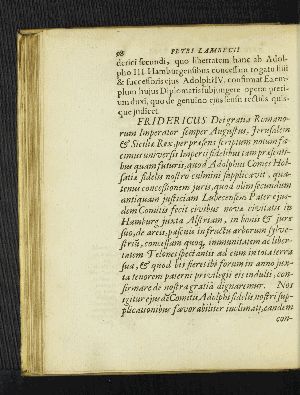 98 PETRI LAMBECII
derici secundi, quo libertatem hanc ab Adol-
pho III. Hamburgensibus concessam rogatu filii
& successoris ejus Adolphi IV. confirmat Exem-
plum hujus Diplomatis subjungere operæ preti-
um duxi, quo de genuino ejus sensu rectius quis-
que judicet.
FRIDERICUS Dei gratia Romano-
rum Imperator semper Augustus, Jerusalem
& Siciliæ Rex, per præsens scriptum notum fa-
cimus universis Imperii fidelibus tam præsenti-
bus quam futuris, quod Adolphus Comes Hol-
satiæ fidelis nostro culmini supplicavit, qua-
tenus concessionem juris, quod olim secundum
antiquam justitiam Lubecensem Pater ejus-
dem Comitis fecit civibus novæ civitatis in
Hammenburg juxta Alstriam, in bonis & jure
suo, de areis, pascuis in fructu arborum sylve-
strium, concessam quoq, immunitatem ac liber-
tatem Telonei spectantis ad eum in tota terra
sua, & quod bis fieri sibi forum in anno jux-
ta tenorem paterni privilegii eis indulsit, con-
firmare de nostra gratia dignaremur. Nos
igitur ejusdem Comitis Adolphi fidelis nostri sup-
plicationibus favorabiliter inclinati, eandem
con-